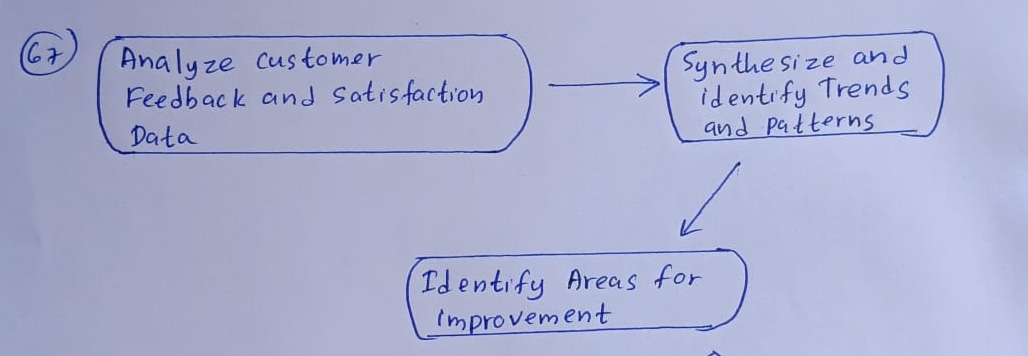 67)
Analyze customer
Feedback and satisfaction
Data
Synthesize and
identify Trends
and patterns
Identify Areas for
improvement